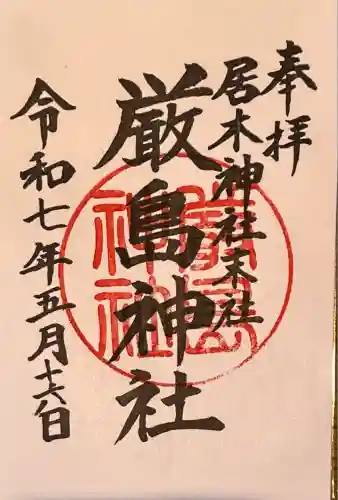 奉拝
居木神社末社
厳島神社
令和七年五月十六日
厳島神社